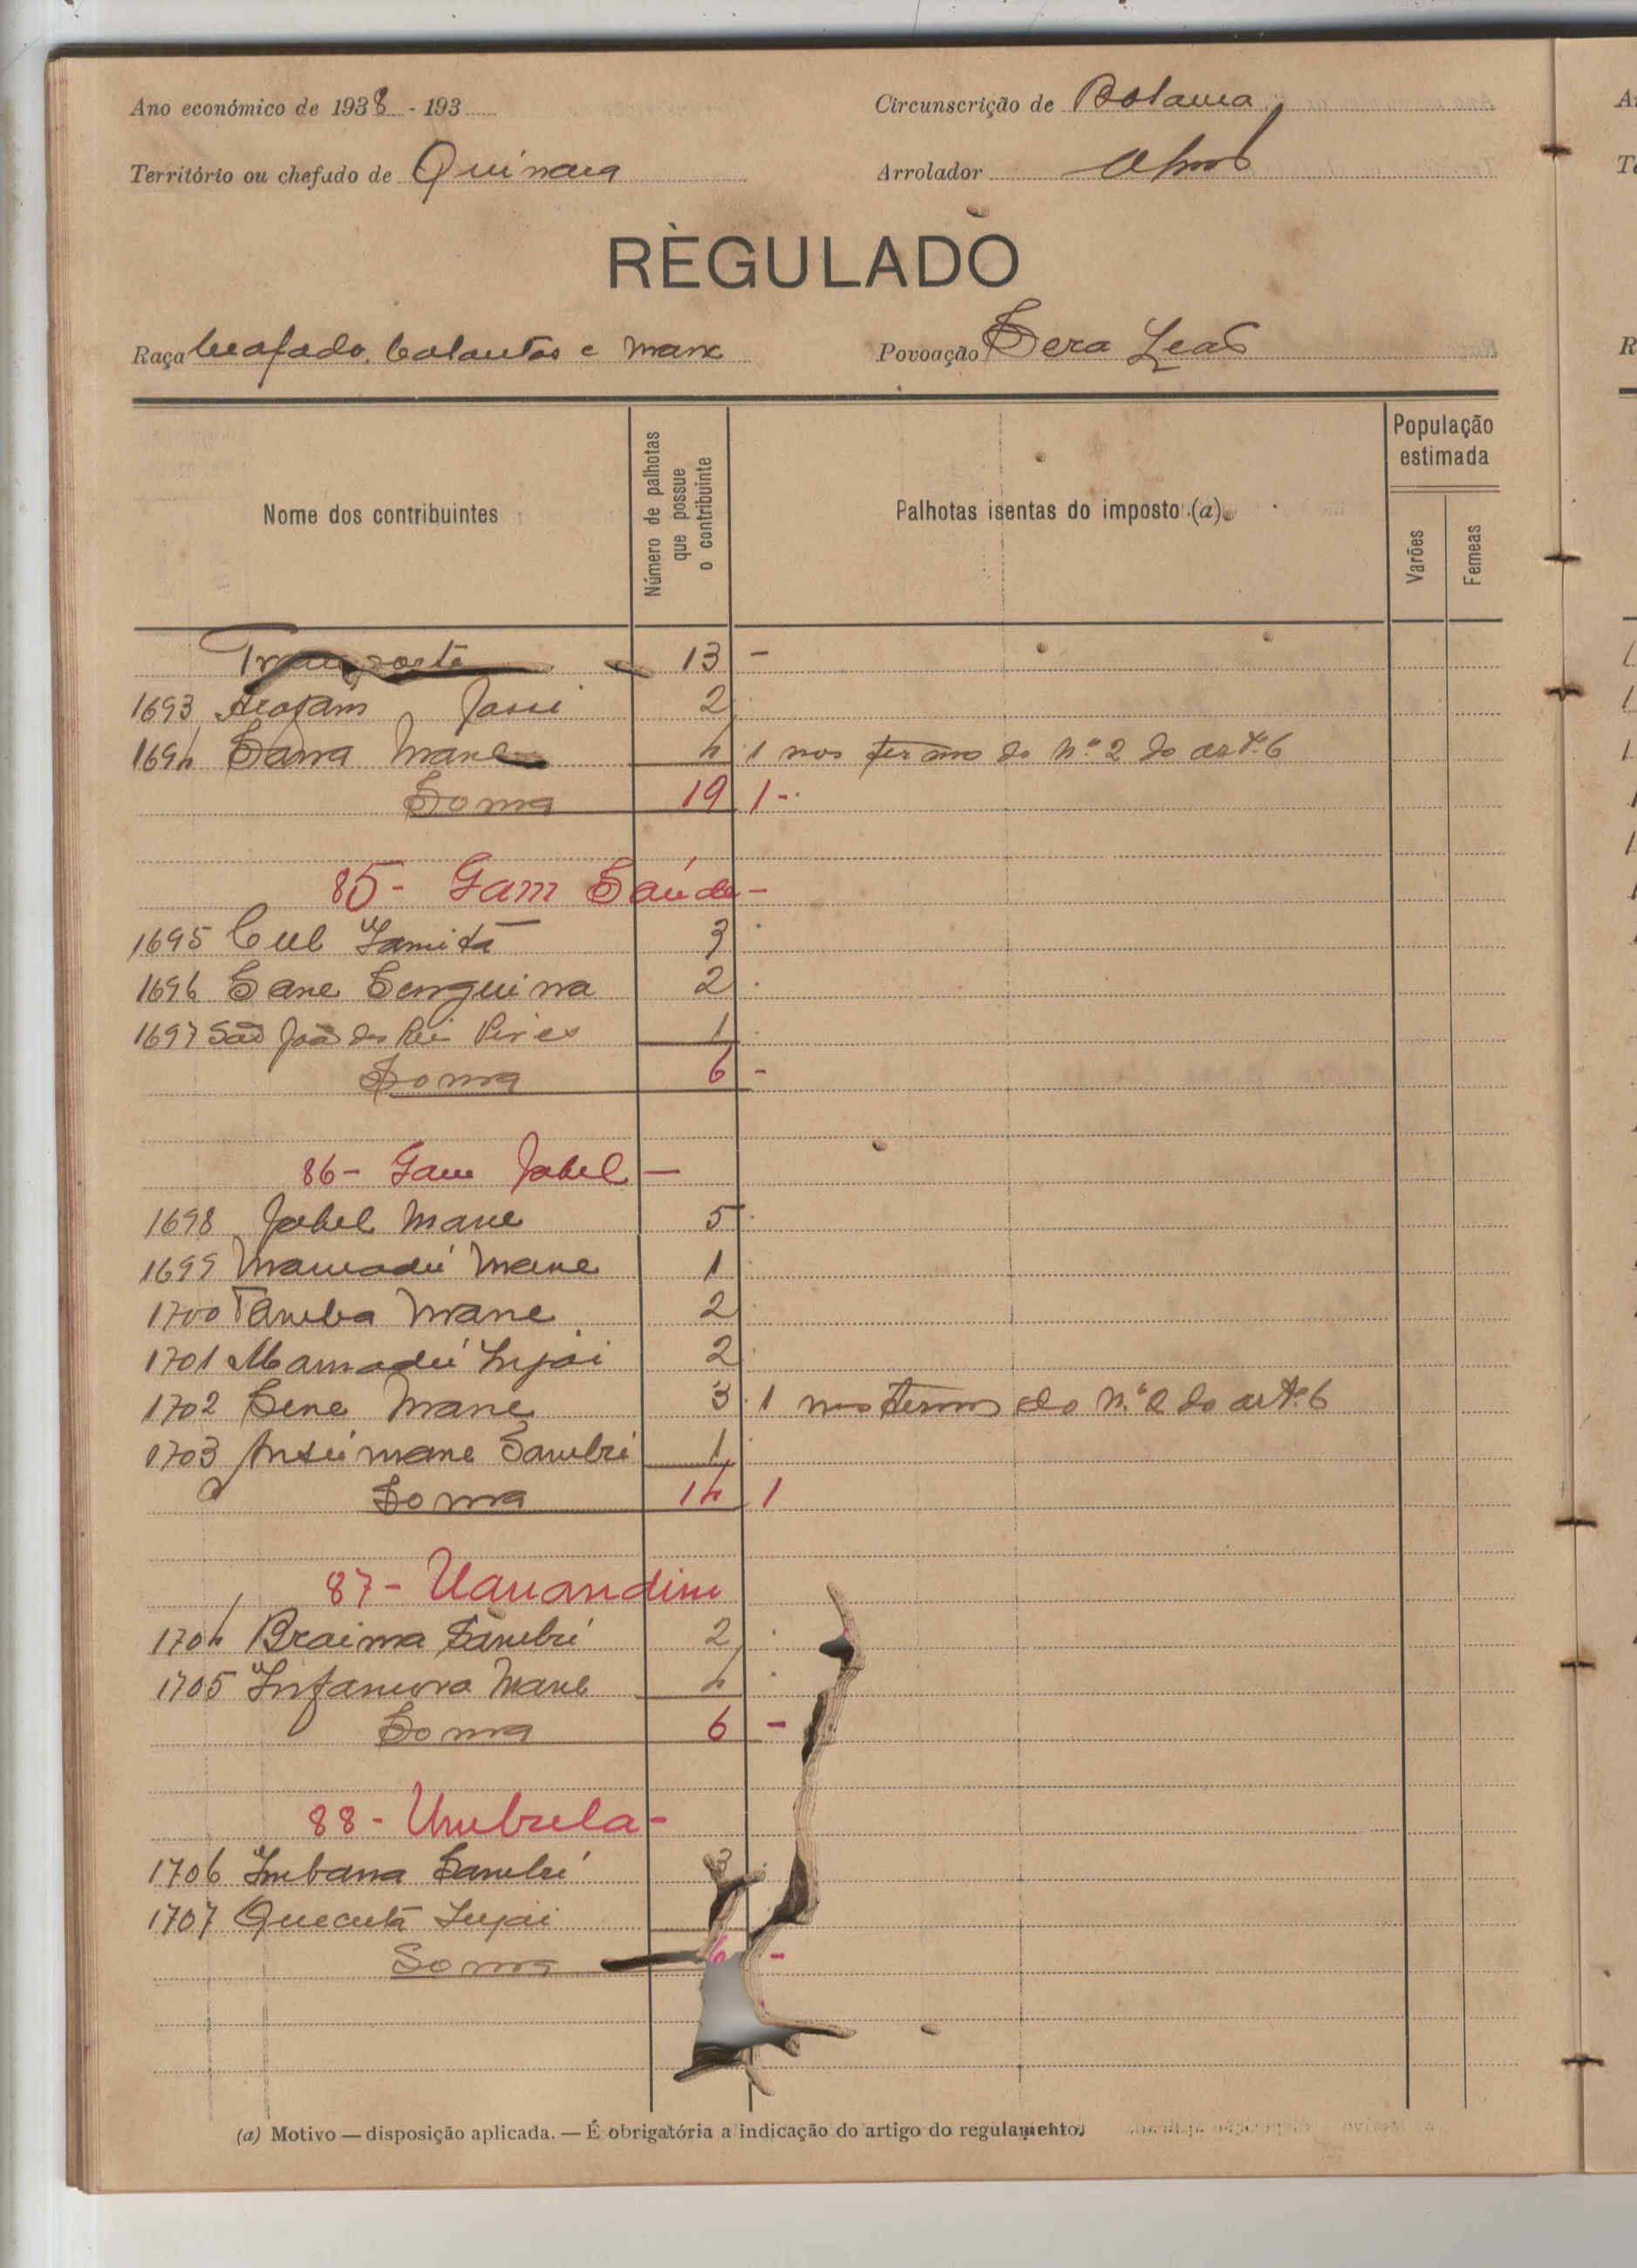 Ano económico de 1938 - 193
Circunscrição de Bolama
Território ou chefado de Quinara
Arrolador
RÈGULADO
Raça Beafado, balantas e mane
Povoação Sera Leão
Nome dos contribuintes
Número de palhotas que possue o contribuinte
Palhotas isentas do imposto (a)
População estimada
Varões
Femeas
Transporte 13 -
1693 Jassi 2
1694 Sana Mane 4 1 nos termo do nº 2 do artº 6
Soma 19 1 -
85 - Gam Saúde -
1695 Cul Lamitã 3
1696 Sane Senguina 2
1697 São João des Rei Pires 1
Soma 6 -
86 - Gam Jabel -
1698 Jabel Mane 5
1699 Mamadú Mane 1
1700 Tamba Mane 2
1701 Mamadú Injai 2
1702 Sene Mane 3 1 nos termos do nº 2 do artº 6
1703 Ansúmane Sambú 1
Soma 14 1
87 - Uanandim
1704 Braima Sambú 2
1705 Infamora Mane 4
Soma 6 -
88 - Umbula -
1706 Imbana Sambú 3
1707 Quecutá Injai
Soma 6 -
(a) Motivo — disposição aplicada. — É obrigatória a indicação do artigo do regulamento.